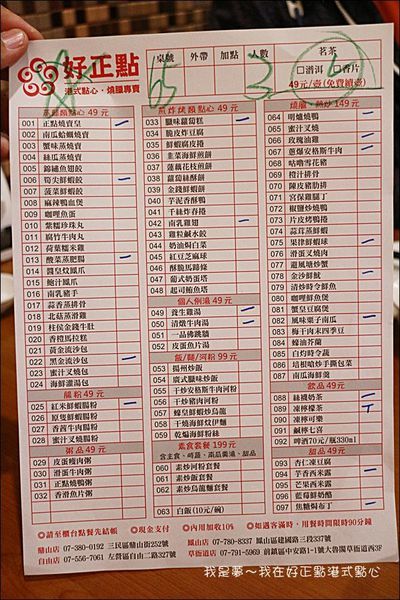 好正點
港式點心・燒臘專賣
桌號 外帶 加點 人數 茗茶
65 3
□普洱 □香片
49元/壺(免費續壺)
蒸籠類點心 49 元
001 正點燒賣皇
002 南瓜蛤蠣燒賣
003 蟹味蒸燒賣
004 絲瓜蒸燒賣
005 錦繡魚翅餃
006 筍尖鮮蝦餃
007 菠菜鮮蝦餃
008 麻辣鴨血煲
009 咖哩魚蛋
010 紫糯珍珠丸
011 腐竹牛肉丸
012 荷葉糯米雞
013 酸菜蒸肥腸
014 醬皇炆鳳爪
015 鮑汁鳳爪
016 南乳豬手
017 蒜香蒸排骨
018 北菇蒸滑雞
019 柱侯金錢牛肚
020 香橙馬拉糕
021 黃金流沙包
022 黑金流沙包
023 蜜汁叉燒包
024 海鮮灌湯包
腸粉 49 元
025 紅米鮮蝦腸粉
026 原隻鮮蝦腸粉
027 香茜牛肉腸粉
028 蜜汁叉燒腸粉
粥品 49 元
029 皮蛋瘦肉粥
030 滑蛋牛肉粥
031 正點燒鴨粥
032 香滑魚片粥
煎炸烤類點心 49 元
033 臘味蘿蔔糕
034 脆皮炸豆腐
035 鮮蝦腐皮捲
036 韭菜海鮮煎餅
037 蓮藕花枝煎餅
038 蘿蔔絲酥餅
039 金錢鮮蝦餅
040 芋泥香酥鴨
041 千絲炸春捲
042 南乳雞翅
043 雞粒鹹水餃
044 奶油焗白菜
045 紅豆芝麻球
046 酥脆馬蹄條
047 葡式奶蛋塔
048 起司鮪魚塔
個人例湯 49 元
049 養生雞湯
050 清燉牛肉湯
051 一品佛跳牆
052 皮蛋魚片湯
飯/麵/河粉 99 元
053 揚州炒飯
054 廣式臘味炒飯
055 干炒安格斯牛肉河粉
056 干炒豬肉河粉
057 蠔皇鮮蝦炒烏龍
058 星洲海鮮炆伊麵
059 乾煸海鮮粉絲
素食套餐 199 元
060 素炒河粉套餐
061 素炒飯套餐
062 素炒烏龍麵套餐
063 白飯(10元/碗)
燒臘、熱炒 149 元
064 明爐燒鴨
065 蜜汁叉燒
066 玫瑰油雞
067 蔥爆安格斯牛肉
068 咕嚕雪花豬
069 橙汁排骨
070 陳皮豬肋排
071 宮保雞腿丁
072 椒鹽炒燒鴨
073 片皮烤鴨捲
074 蒜茸蒸鮮蝦
075 果律鮮蝦球
076 滑蛋叉燒肉
077 避風塘炒蟹
078 金沙鮮魷
079 清炒時令鮮魚
080 咖哩鮮魚煲
081 蟹皇豆腐煲
082 風味粟子南瓜
083 梅干肉末四季豆
084 蠔油芥蘭
085 白灼時令蔬
086 培根嗆炒手撕包菜
087 南瓜燜排骨
飲品 49 元
088 絲襪奶茶
089 凍檸檬茶
090 凍檸可樂
091 鹹檸七喜
092 啤酒70元/瓶330ml
甜品 49 元
093 杏仁凍豆腐
094 芋香西米露
095 芒果西米露
096 藍莓鮮奶酪
097 焦糖焗布丁
◎請至櫃台點餐先結帳 ◎現金支付 ◎內用加收10% ◎如遇客滿時，用餐時間限時90分鐘
鼎山店 07-380-0192 三民區鼎山街252號 鳳山店 07-780-8337 鳳山區建國路三段337號
自由店 07-556-7061 左營區自由二路327號 草衙道店 07-791-5969 前鎮區中安路1-1號大魯閣草衙道西3F
我是夢～我在好正點港式點心